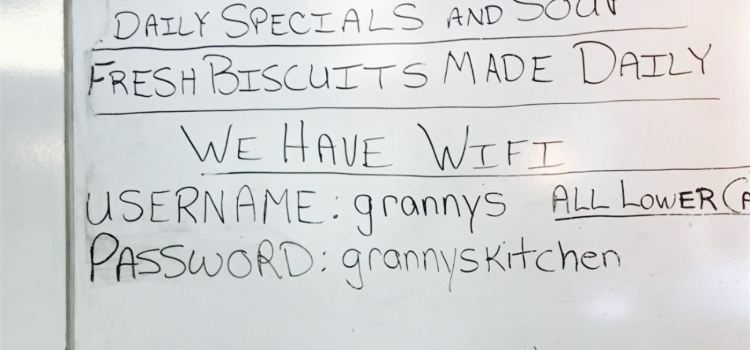 DAILY SPECIALS AND SOUP
FRESH BISCUITS MADE DAILY
WE HAVE WIFI
USERNAME: grannys ALL LOWER
PASSWORD: grannyskitchen